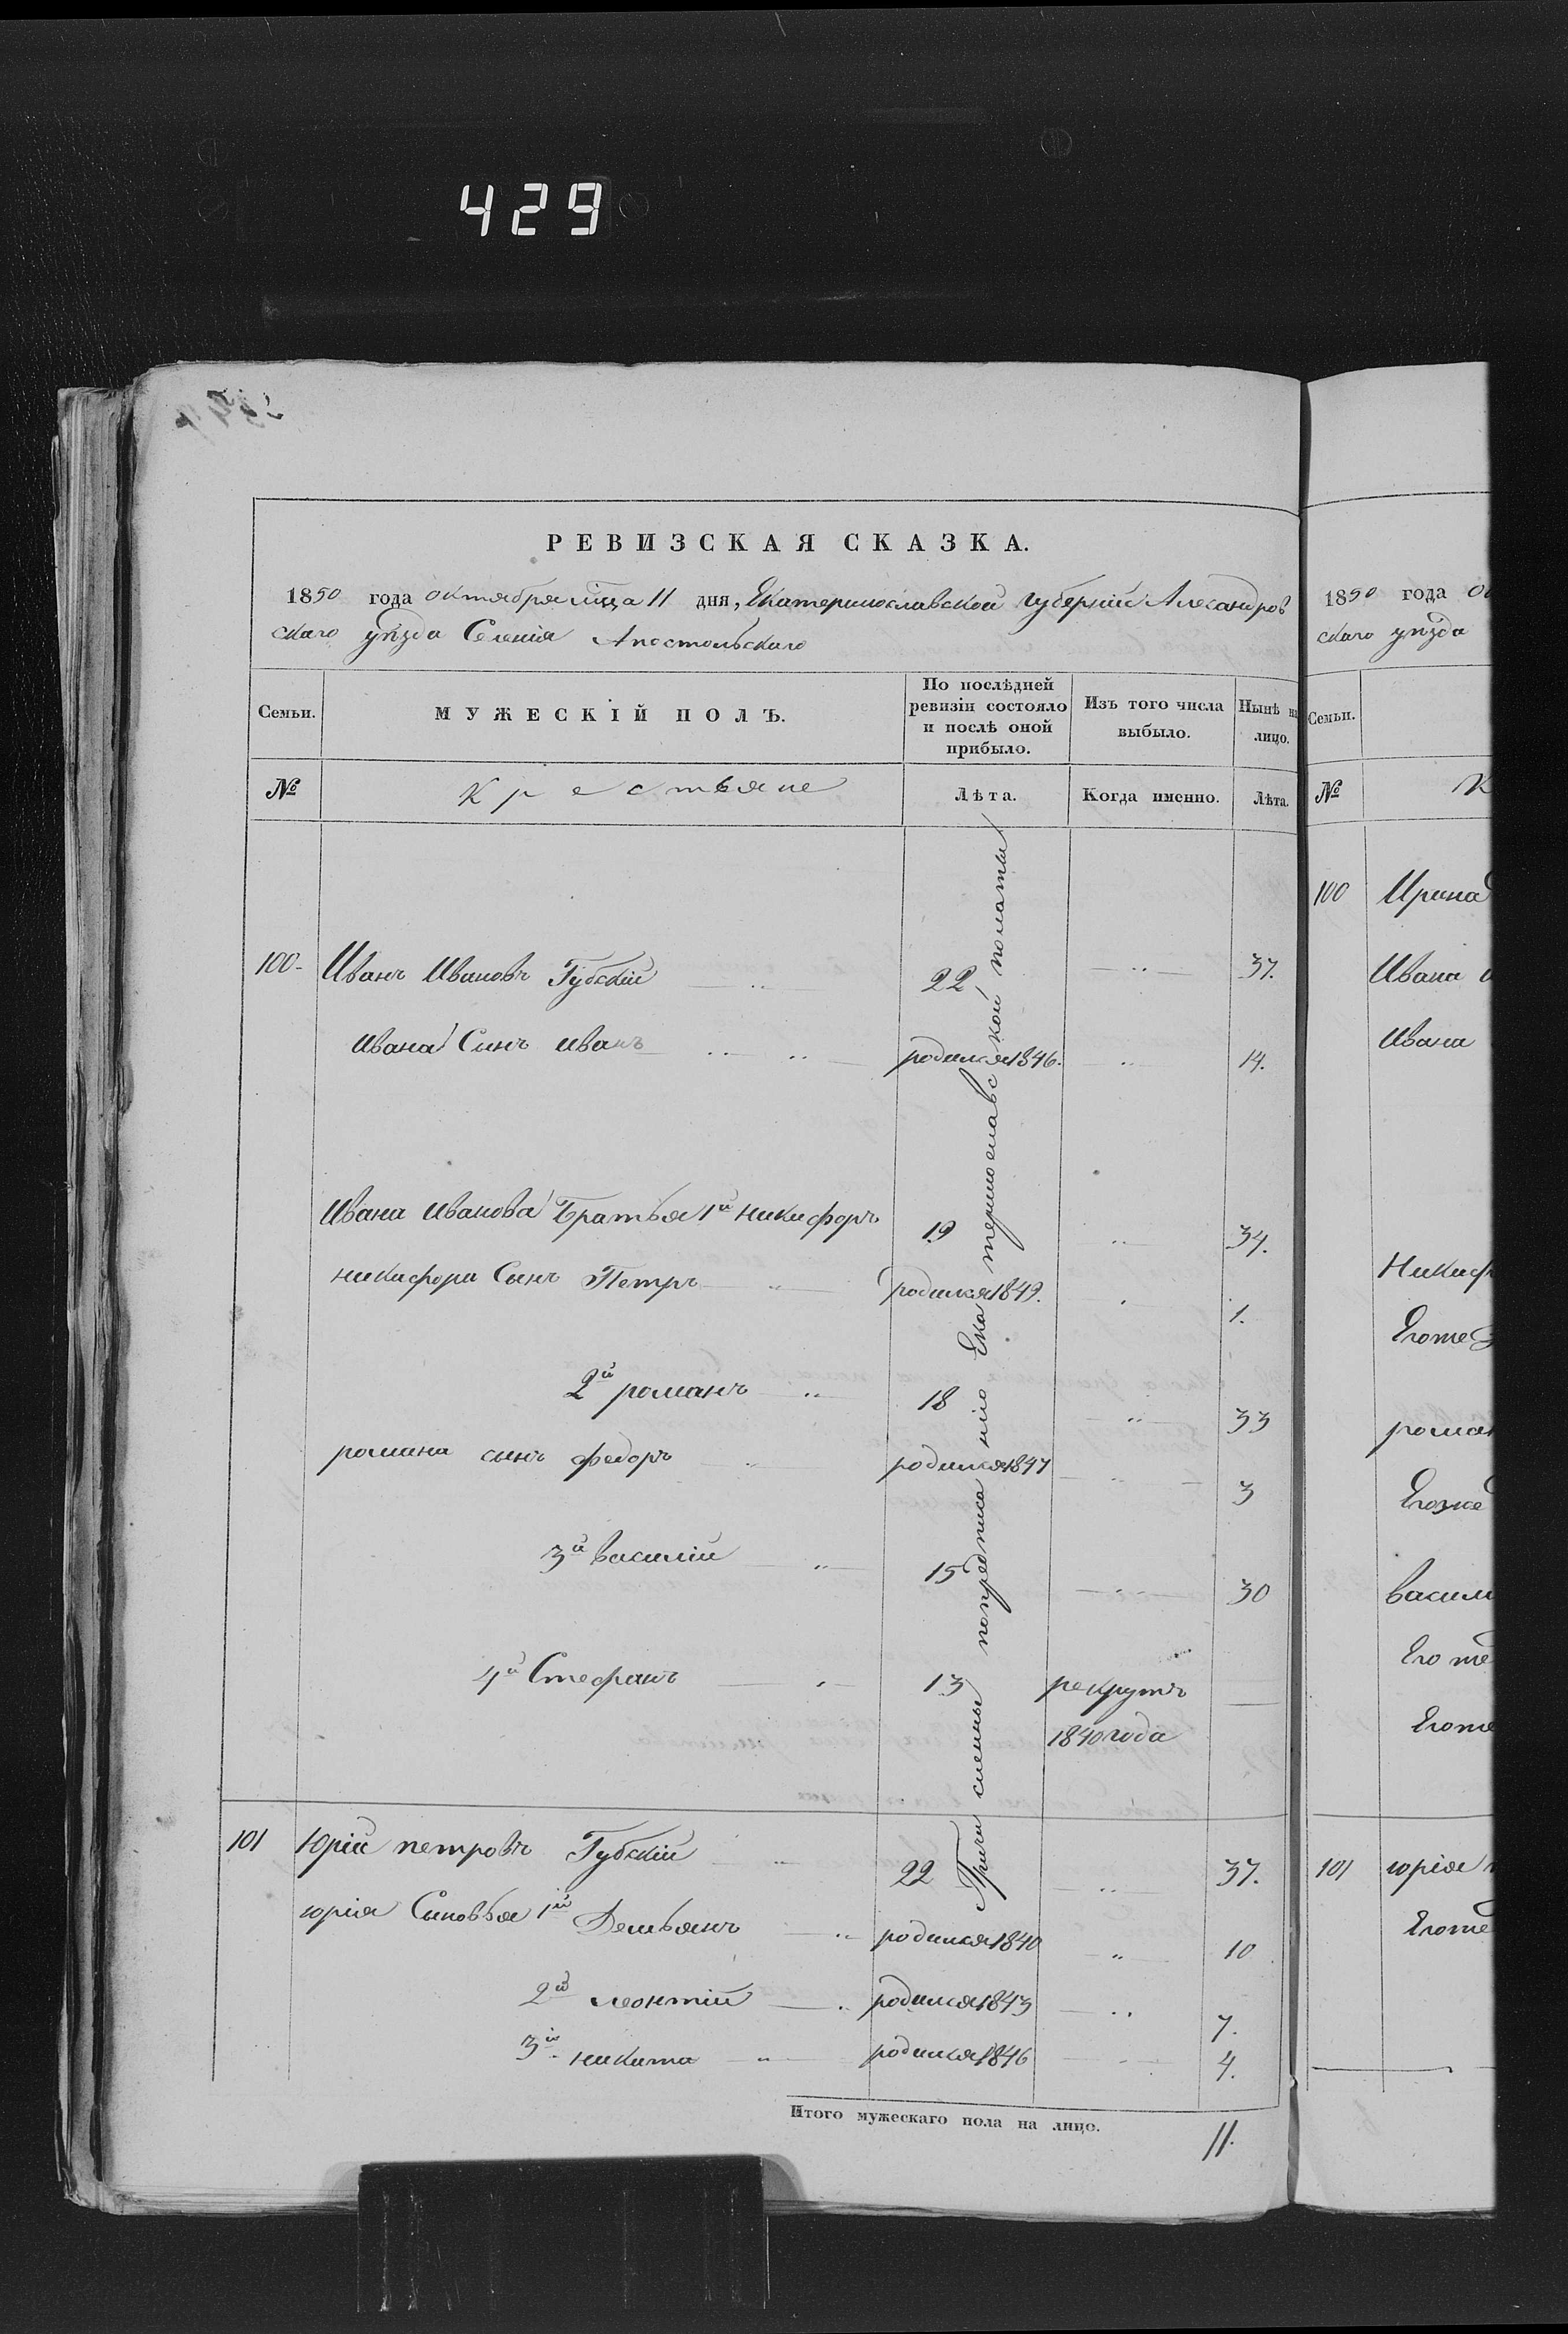 429
РЕВИЗСКАЯ СКАЗКА.
1850 года октября мца 11 дня, Екатеринославской губерніи Алесандров
скаго уѣзда Селенія Апостольскаго
Семьи.
МУЖЕСКІЙ ПОЛЪ.
По послѣдней
ревизіи состояло
и послѣ оной
прибыло.
Изъ того числа
выбыло.
Нынѣ на
лицо.
№
Крестьяне
Лѣта.
Когда именно.
Лѣта.
100- Иванъ Ивановъ Губскій 22 37.
Ивана Сынъ иванъ родился 1846. 14.
Ивана Иванова Братья 1й никифоръ 19 34.
никифора Сынъ Петръ родился 1849. 1.
2й романъ 18 33
романа сынъ федоръ родился 1847 3
3й василій 15 30
4й Стефанъ 13 рекрутъ
1840 года
101 Юрій петровъ Губскій 22 37.
юрія Сыновья 1й Демьянъ родился 1840 10
2й леонтій родился 1843 7.
3й никита родился 1846 4.
Причисленны попредписанию Екатеринославской полаты
Итого мужескаго пола на лицо.
11.
1850 года ок
скаго уѣзда
Семьи.
№
К
100 Ирина
Ивана
Ивана
Никиф
Егоже
роман
Егоже
васили
Егоже
Егоже
101 юрія
Егоже